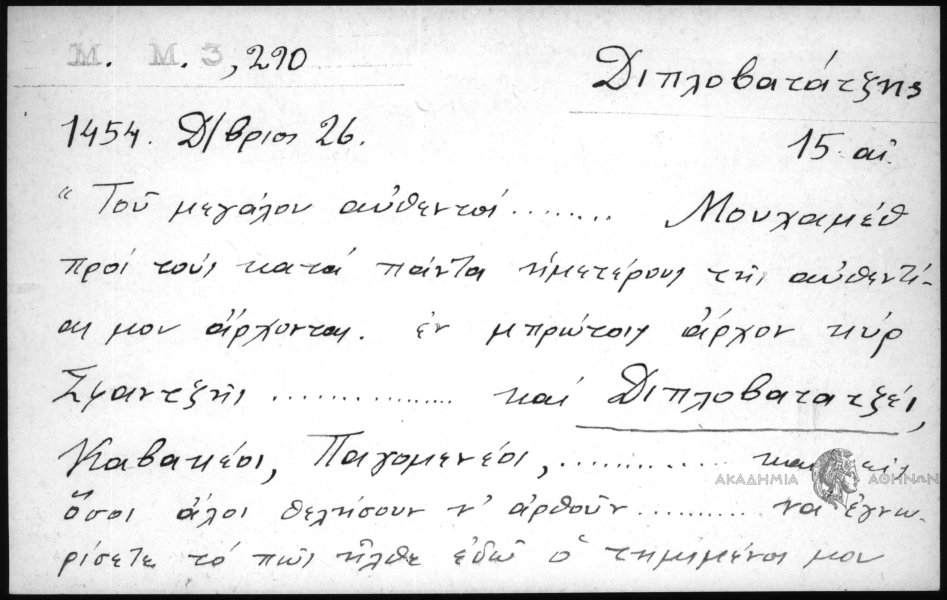 Μ. Μ. 3, 290
Διπλοβατάτζης
1454. Δ/βριος 26.
15. αἰ.
“ Τοῦ μεγάλου αὐθεντός ........ Μουχαμέθ
πρός τούς κατά πάντα ἡμετέρους τῆς αὐθεντί-
ας μου ἄρχοντας. ἐν μπρώτοις ἄρχον κύρ
Σφαντζῆς .............. καί Διπλοβατατζές,
Καβακέοι, Παγομενέοι, ............ και εἰς
ὅσοι ἄλοι θελήσουν ν' ἀρθοῦν .......... να ἐγνω-
ρίσετε τό πῶς ἦλθε ἐδῶ ὁ τημιμένος μου
ΑΚΑΔΗΜΙΑ ΑΘΗΝΩΝ